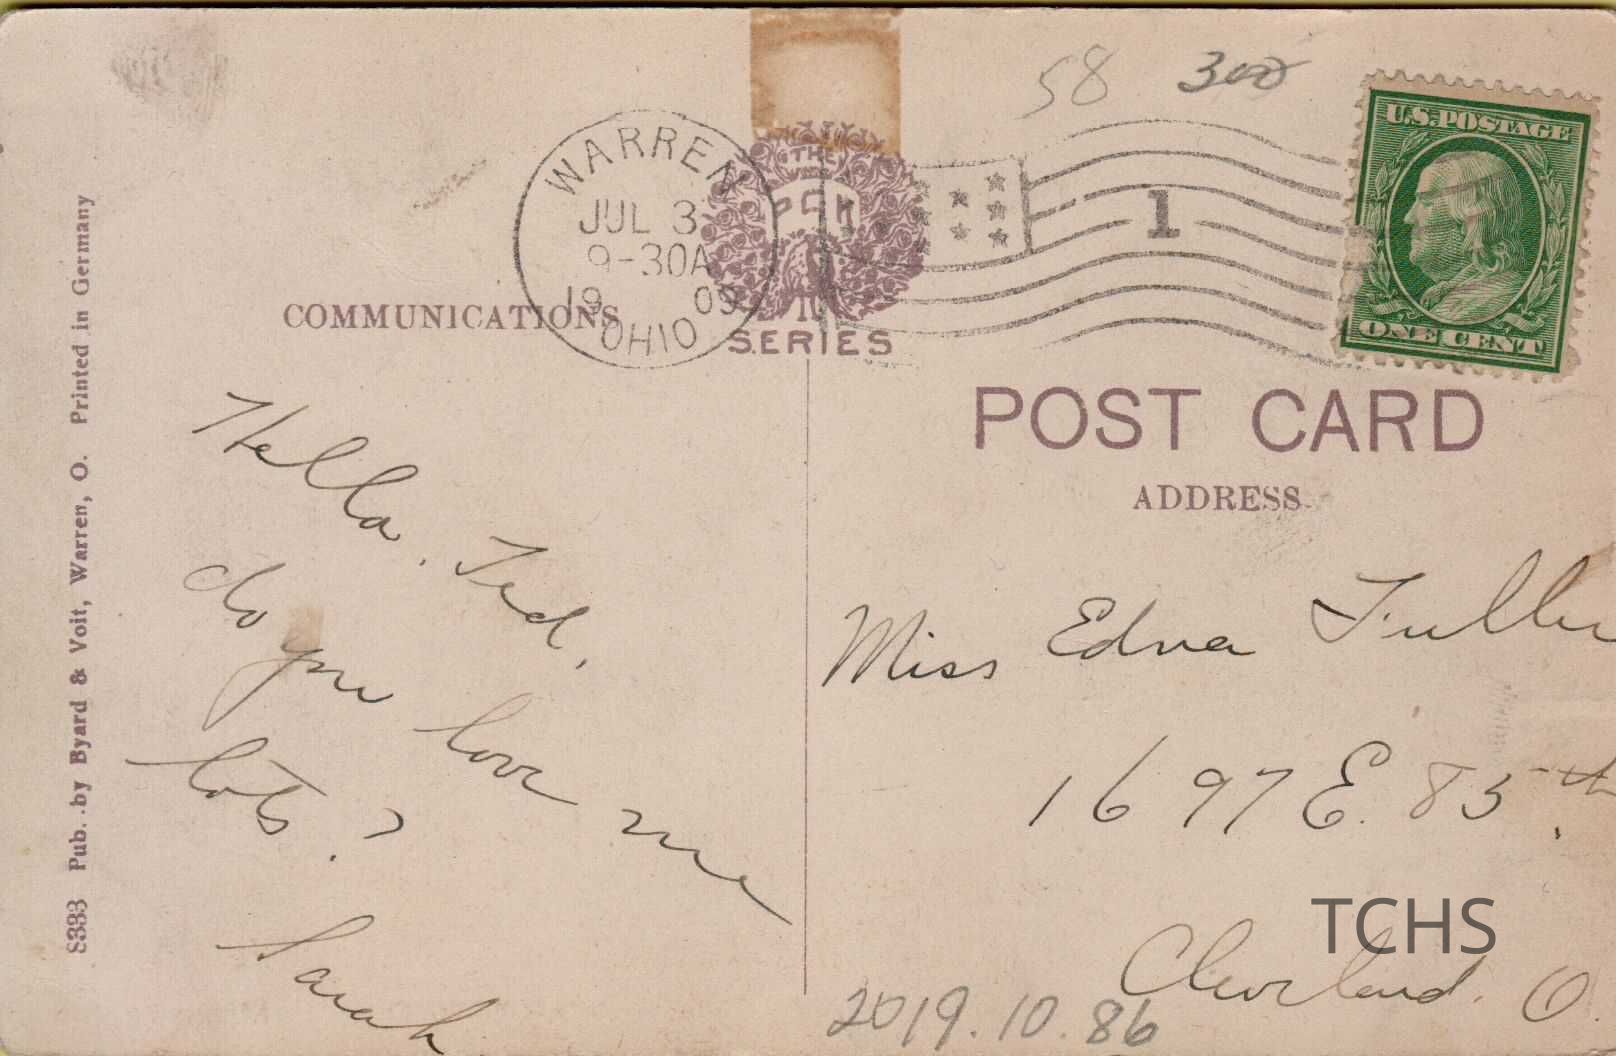 58 300
U.S. POSTAGE
ONE CENT
WARREN
JUL 3
9-30A
19 09
OHIO
1
THE
PCK
SERIES
COMMUNICATIONS
POST CARD
ADDRESS.
Hello. Ted,
do you love me
lots.?
Sarah
Miss Edna Fuller
1697 E. 85th.
Cleveland. O.
TCHS
2019.10.86
S333 Pub. by Byard & Voit, Warren, O. Printed in Germany